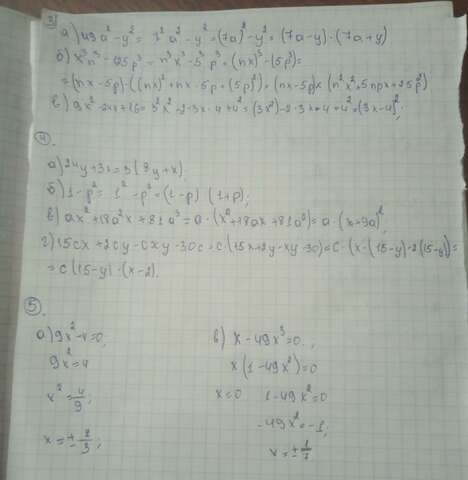 3)
а) 49a² - y² = 7²a² - y² = (7a)² - y² = (7a - y) · (7a + y)
б) x³n³ - 125p³ = n³x³ - 5³p³ = (nx)³ - (5p)³ =
= (nx - 5p) · ((nx)² + nx · 5p + (5p)²) = (nx - 5p) × (n²x² + 5npx + 25p²)
в) 9x² - 24x + 16 = 3²x² - 2 · 3x · 4 + 4² = (3x²) - 2 · 3x · 4 + 4² = (3x - 4)²;
4).
а) 24y + 3x = 3(8y + x).
б) 1 - p² = 1² - p² = (1 - p) (1 + p);
в) ax² + 18a²x + 81a³ = a · (x² + 18ax + 81a²) = a · (x + 9a)²,
г) 15cx + 2cy - cxy - 30c = c · (15x + 2y - xy - 30) = c · (x · (15 - y) - 2(15 - y)) =
= c(15 - y) · (x - 2).
5.
а) 9x² - 4 = 0;
9x² = 4
x² = 4/9;
x = ± 2/3;
в) x - 49x³ = 0.
x(1 - 49x²) = 0
x = 0 1 - 49x² = 0
-49x² = -1;
x = ± 1/7